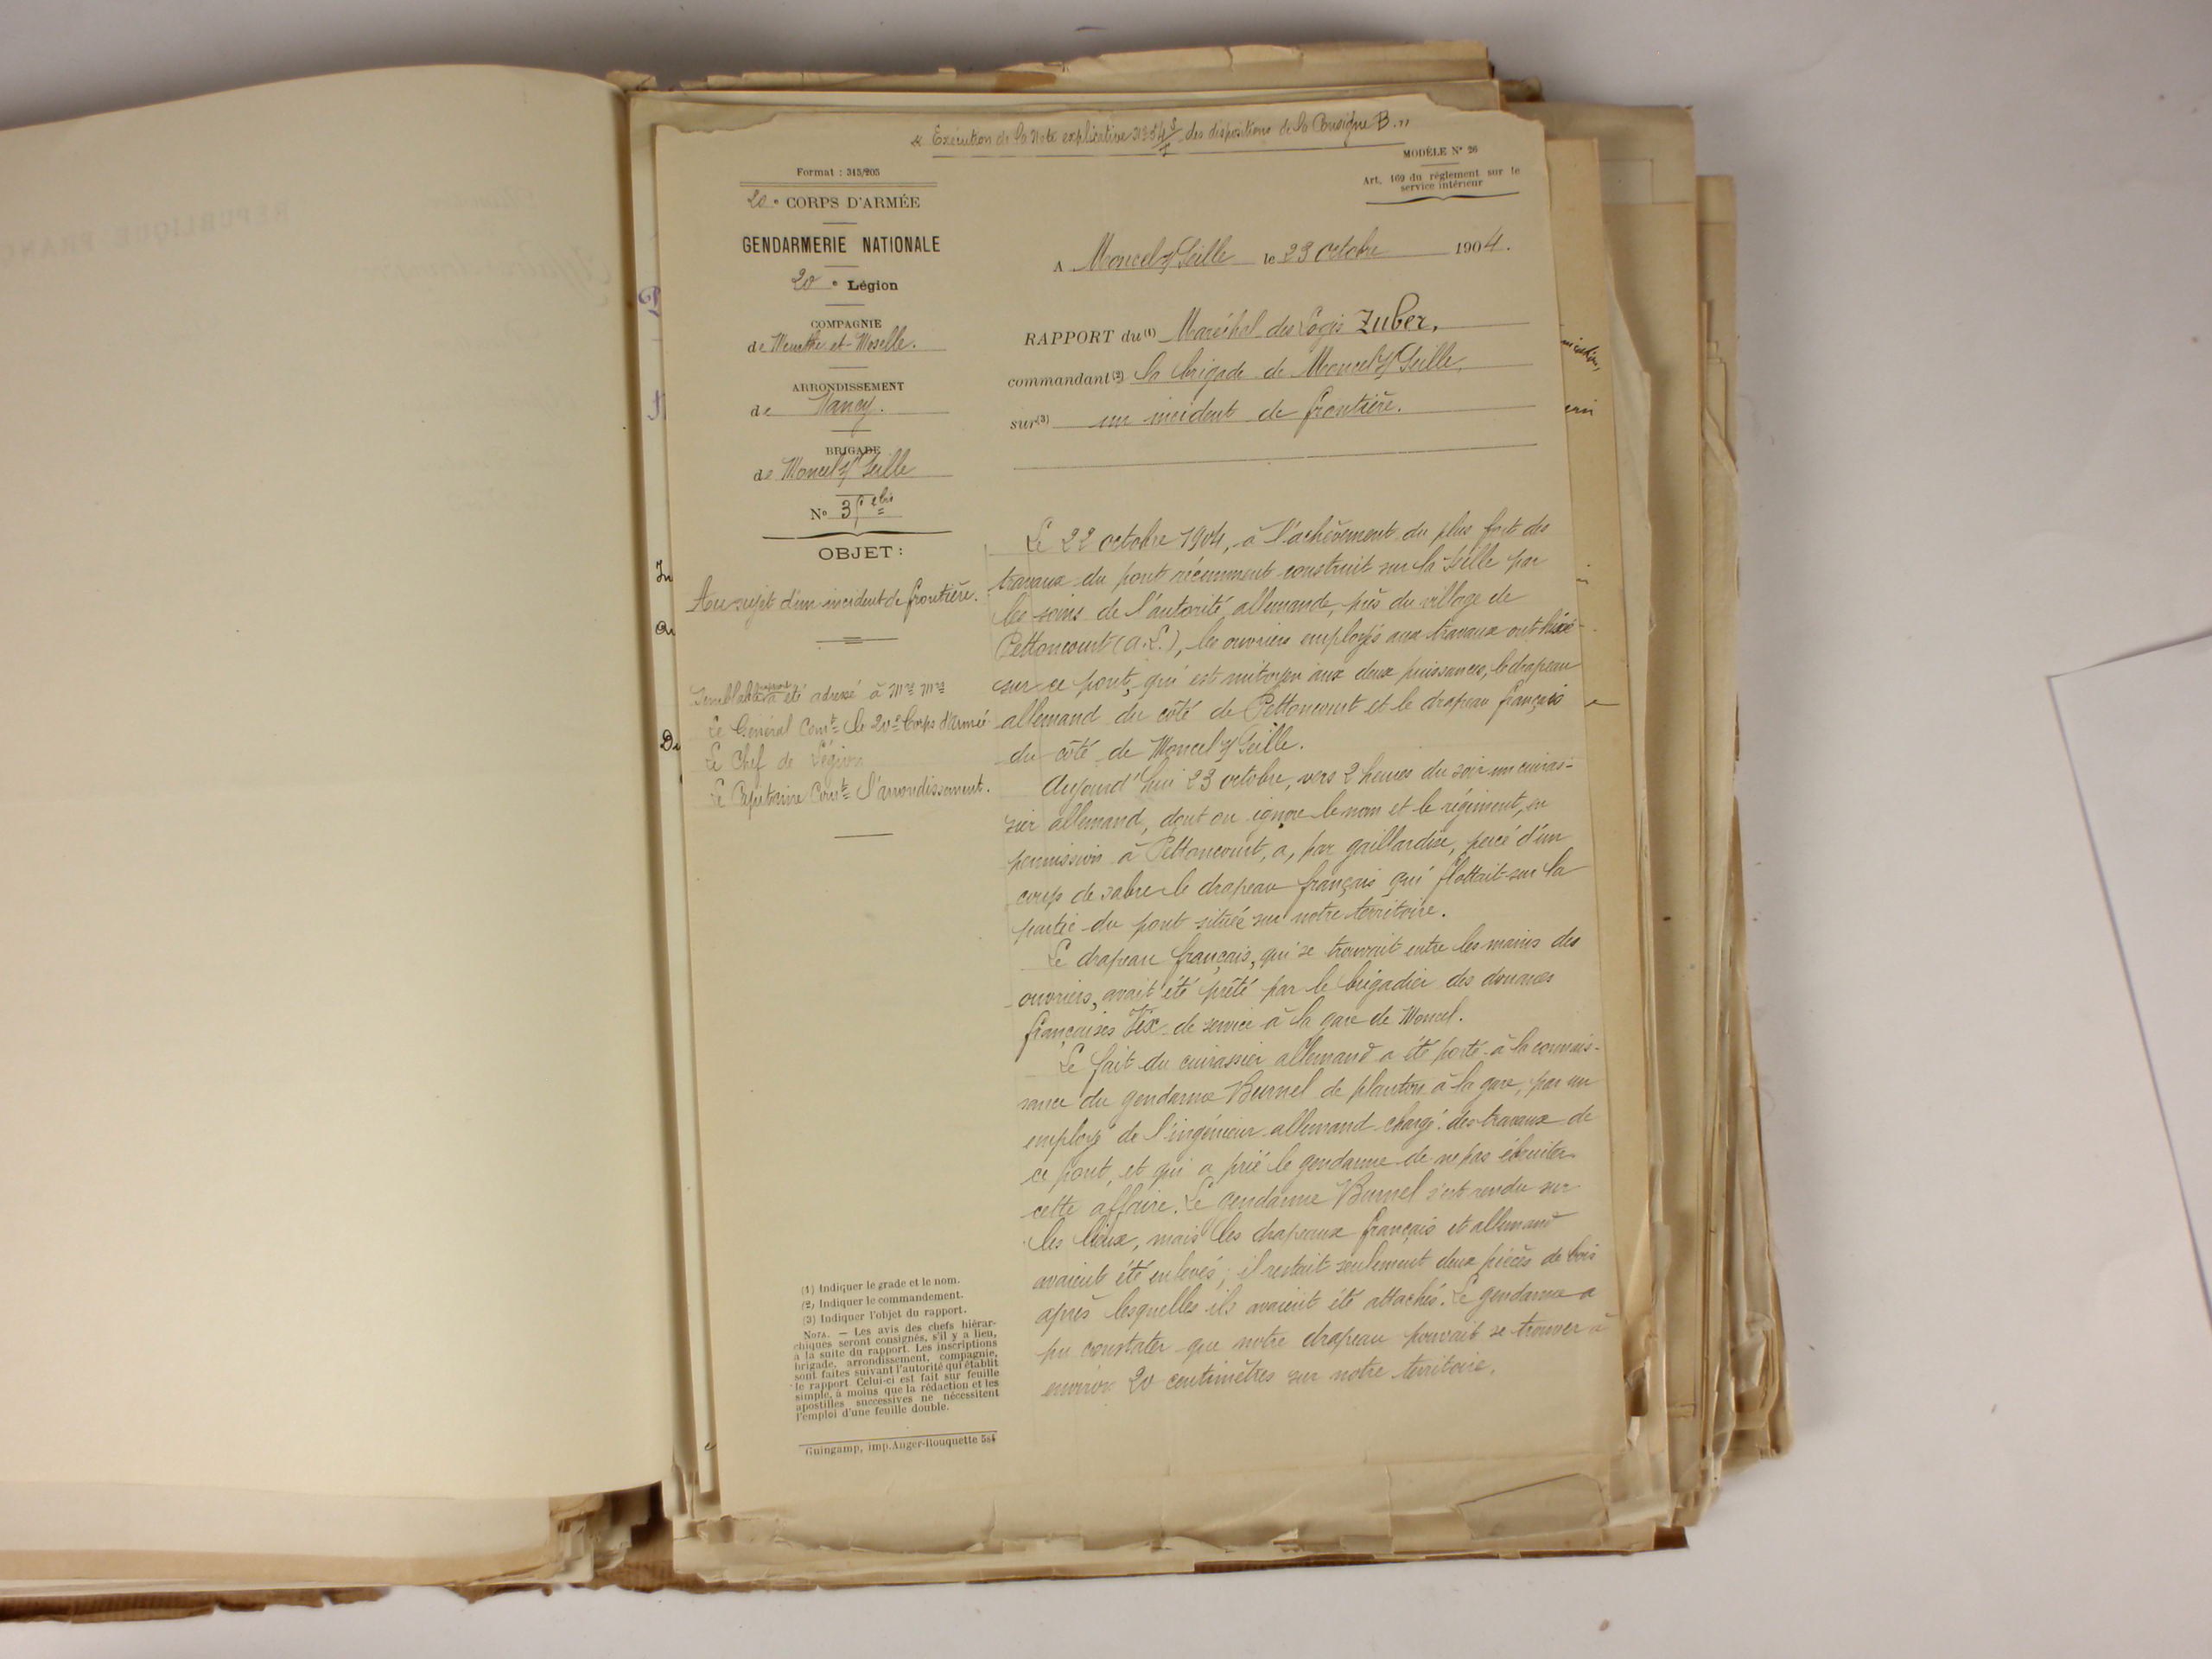 « Exécution de la Note explicative N° 54 S/T des dispositions de la Consigne B. »
MODÈLE N° 26
Art. 169 du règlement sur le
service intérieur
Format : 315/205
20e CORPS D'ARMÉE
GENDARMERIE NATIONALE
20e Légion
COMPAGNIE
de Meurthe et-Moselle.
ARRONDISSEMENT
de Nancy.
BRIGADE
de Moncel s/ Seille
No
OBJET :
Au sujet d'un incident de frontière.
Semblable rapport a été adressé à Mrs Mrs
Le Général Comt le 20e Corps d'Armée
Le Chef de Légion
Le Capitaine Comt l'arrondissement.
(1) Indiquer le grade et le nom.
(2) Indiquer le commandement.
(3) Indiquer l'objet du rapport.
NOTA. — Les avis des chefs hiérar-
chiques seront consignés, s'il y a lieu,
à la suite du rapport. Les inscriptions
brigade, arrondissement, compagnie,
sont faites suivant l'autorité qui établit
le rapport. Celui-ci est fait sur feuille
simple, à moins que la rédaction et les
apostilles successives ne nécessitent
l'emploi d'une feuille double.
Guingamp, imp. Anger-Rouquette
A Moncel s/ Seille le 23 octobre 1904.
RAPPORT du (1) Maréchal des Logis Zuber,
commandant (2) la brigade de Moncel s/ Seille,
sur (3) un incident de frontière.
Le 22 octobre 1904, à l'achèvement du plus fort des
travaux du pont récemment construit sur la Seille par
les soins de l'autorité allemande, près du village de
Pettoncourt (A.L.), les ouvriers employés aux travaux ont hissé
sur ce pont, qui est mitoyen aux deux puissances, le drapeau
allemand du côté de Pettoncourt et le drapeau français
du côté de Moncel s/ Seille.
Aujourd'hui 23 octobre, vers 2 heures du soir un cuiras-
sier allemand, dont on ignore le nom et le régiment, en
permission à Pettoncourt, a, par gaillardise, percé d'un
coup de sabre le drapeau français qui flottait sur la
partie du pont située sur notre territoire.
Le drapeau français, qui se trouvait entre les mains des
ouvriers, avait été prêté par le brigadier des douanes
françaises Fix de service à la gare de Moncel.
Le fait du cuirassier allemand a été porté à la connais-
sance du gendarme Burnel de planton à la gare, par un
employé de l'ingénieur allemand chargé des travaux de
ce pont, et qui a prié le gendarme de ne pas ébruiter
cette affaire. Le gendarme Burnel s'est rendu sur
les lieux, mais les drapeaux français et allemand
avaient été enlevés ; il restait seulement deux pièces de bois
après lesquelles ils avaient été attachés. Le gendarme a
pu constater que notre drapeau pouvait se trouver à
environ 20 centimètres sur notre territoire.